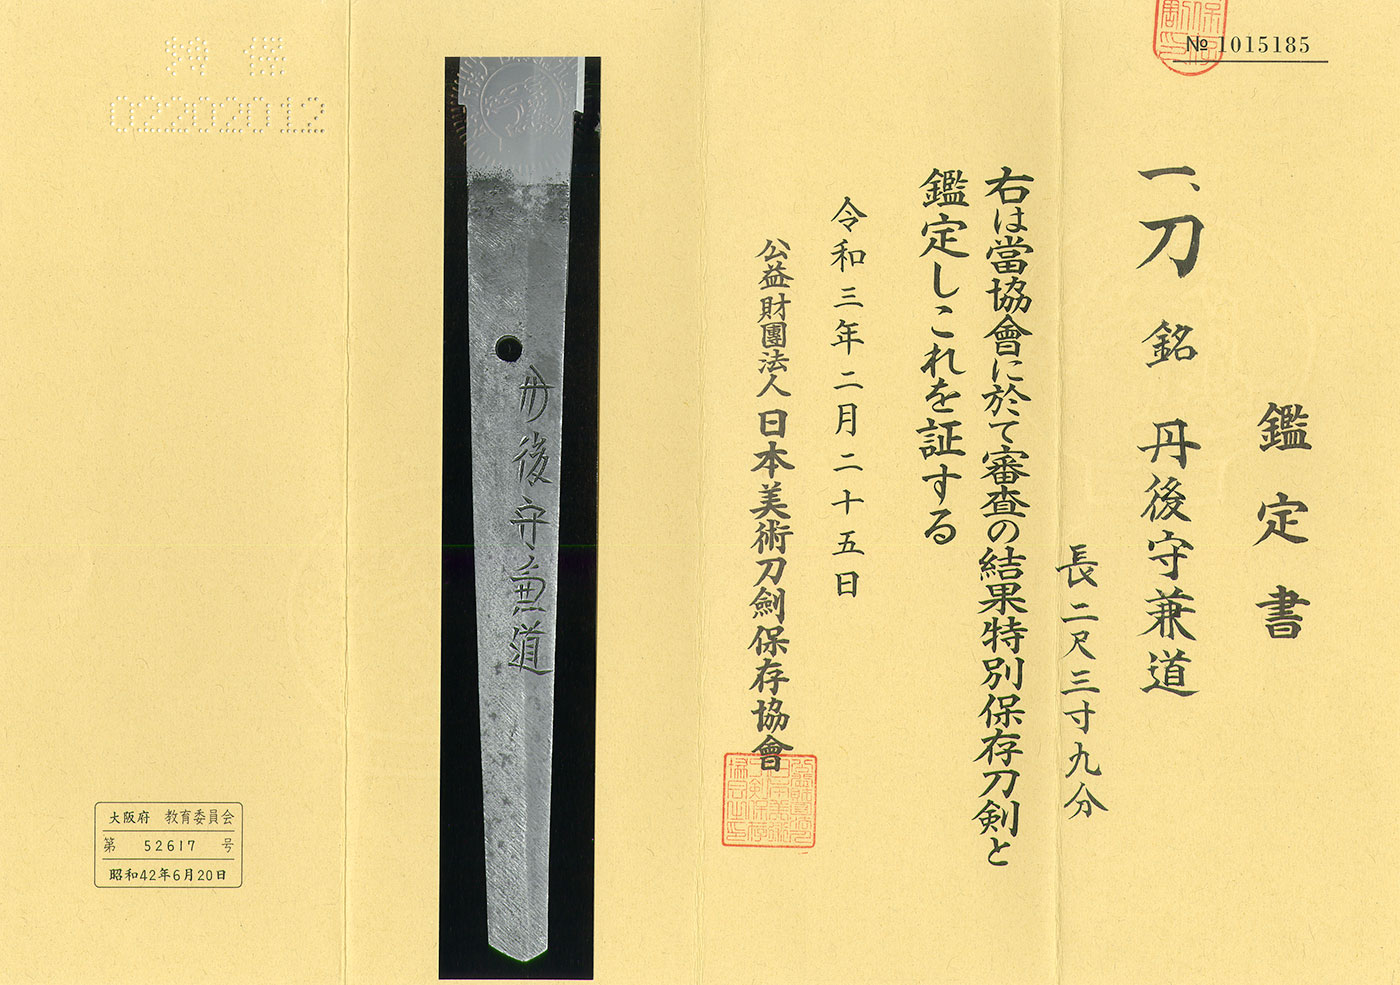 № 1015185
鑑定書
一、刀 銘 丹後守兼道
長二尺三寸九分
右は當協會に於て審査の結果特別保存刀剣と
鑑定しこれを証する
令和三年二月二十五日
公益財團法人日本美術刀劍保存協會
丹後守兼道
02202012
大阪府 教育委員会
第 52617 号
昭和42年6月20日